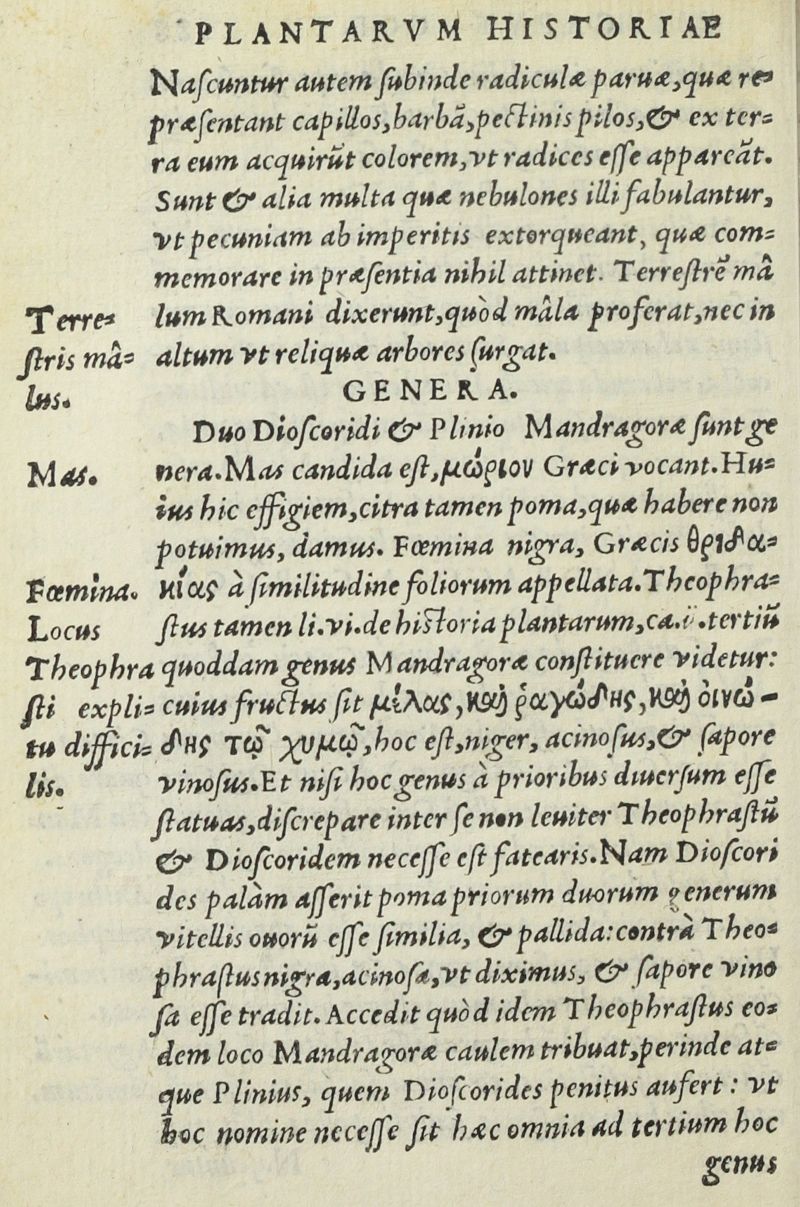 PLANTARVM HISTORIAE
Naſcuntur autem ſubinde radiculæ paruæ,quæ re-
præſentant capillos,barbā,pectinis pilos,& ex ter-
ra eum acquirūt colorem,vt radices eſſe appareāt.
Sunt & alia multa quæ nebulones illi fabulantur,
vt pecuniam ab imperitis extorqueant, quæ com-
memorare in præſentia nihil attinet. Terreſtrē mâ
Terre-
lum Romani dixerunt,quòd mâla proferat,nec in
ſtris mâ-
altum vt reliquæ arbores ſurgat.
lus.
GENERA.
Duo Dioſcoridi & Plinio Mandragoræ ſunt ge
Mas.
nera.Mas candida eſt,μώριον Græci vocant.Hu-
ius hic effigiem,citra tamen poma,quæ habere non
potuimus, damus. Fœmina nigra, Græcis θριδα-
Fœmina.
κίας à ſimilitudine foliorum appellata.Theophra-
Locus
ſtus tamen li.vi.de hiſtoria plantarum,ca.ii.tertiū
Theophra
quoddam genus Mandragoræ conſtituere videtur:
ſti expli-
cuius fructus ſit μέλας,καὶ ῥαγώδης,καὶ οἰνώ-
tu diffici-
δης τῷ χυμῷ,hoc eſt,niger, acinoſus,& ſapore
lis.
vinoſus.Et niſi hoc genus à prioribus diuerſum eſſe
ſtatuas,diſcrepare inter ſe non leuiter Theophraſtū
& Dioſcoridem neceſſe eſt fatearis.Nam Dioſcori
des palàm aſſerit poma priorum duorum generum
vitellis ouorū eſſe ſimilia, & pallida:contrà Theo-
phraſtus nigra,acinoſa,vt diximus, & ſapore vino
ſa eſſe tradit. Accedit quòd idem Theophraſtus eo-
dem loco Mandragoræ caulem tribuat,perinde at-
que Plinius, quem Dioſcorides penitus aufert : vt
hoc nomine neceſſe ſit hæc omnia ad tertium hoc
genus